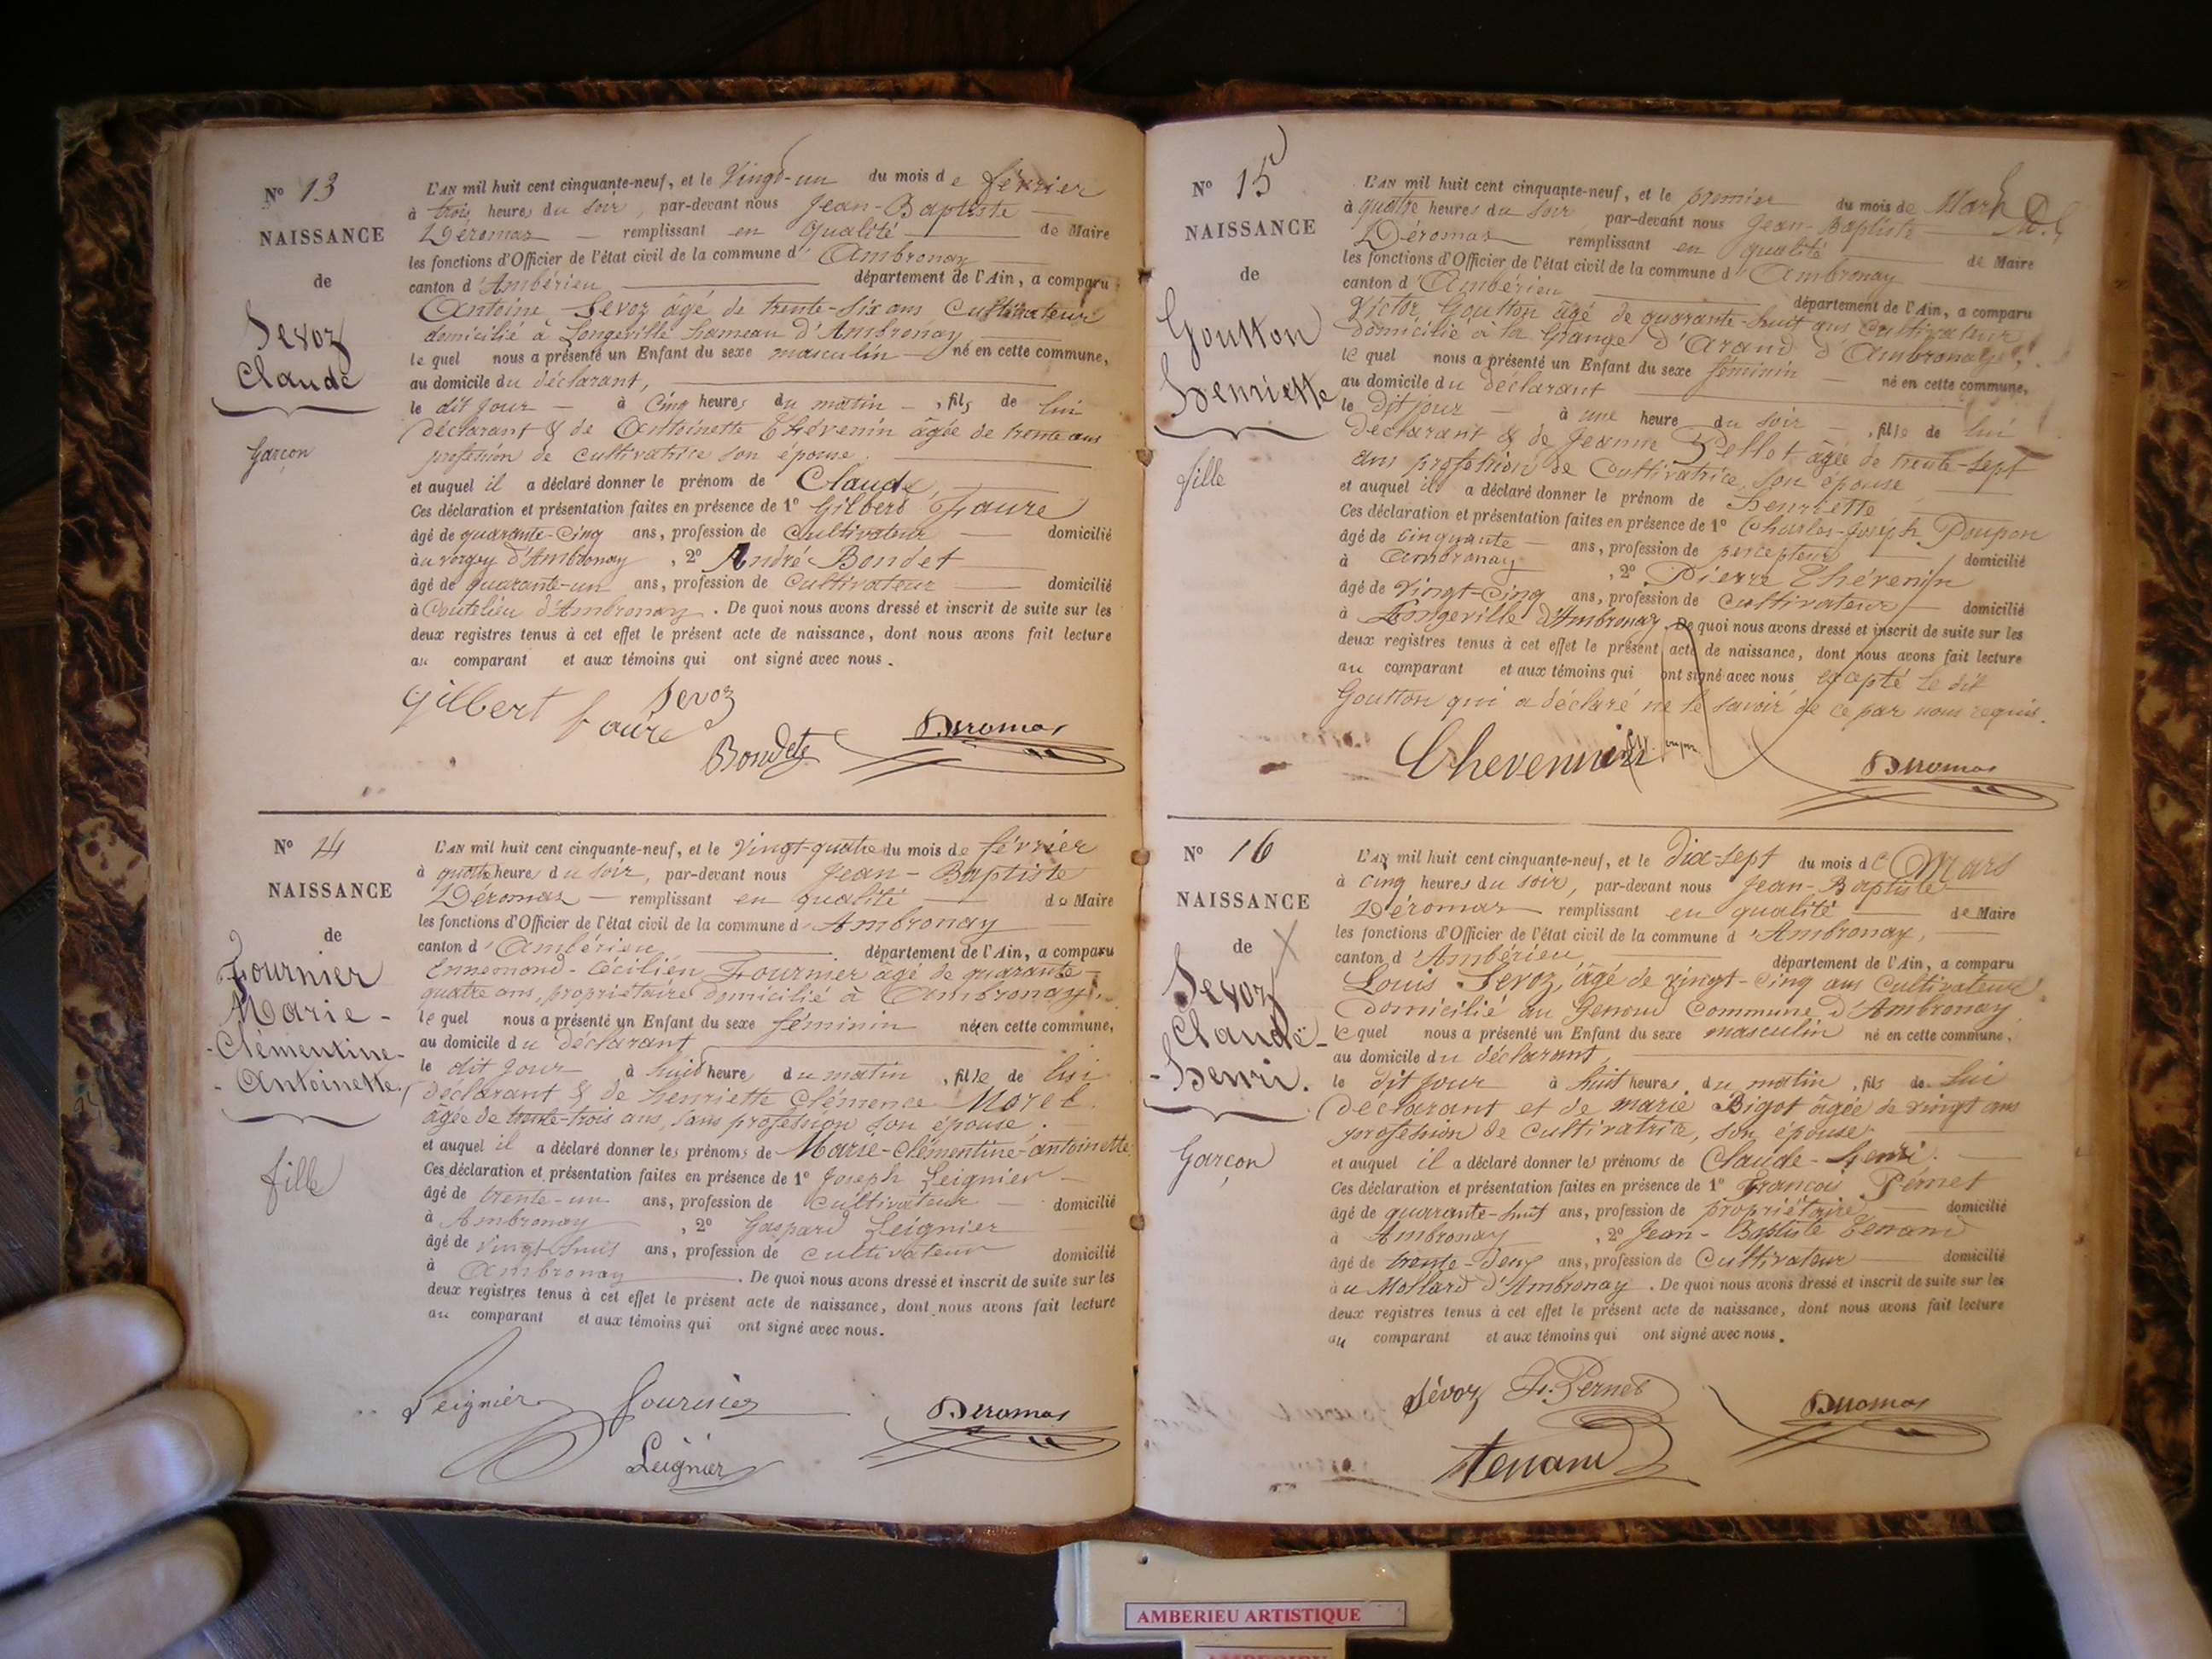 N° 13
NAISSANCE
de
Sevoz
Claude
Garçon
L'AN mil huit cent cinquante-neuf, et le Vingt-un du mois de février
à trois heures du soir, par-devant nous Jean-Baptiste
Déromas remplissant en qualité de Maire
les fonctions d'Officier de l'état civil de la commune d'Ambronay
canton d'Ambérieu département de l'Ain, a comparu
Antoine Sevoz âgé de trente-six ans Cultivateur
domicilié à Longeville hameau d'Ambronay
lequel nous a présenté un Enfant du sexe masculin né en cette commune,
au domicile du déclarant,
le dit jour à Cinq heures du matin, fils de lui
déclarant & de Antoinette Thévenin âgée de trente ans
profession de Cultivatrice son épouse.
et auquel il a déclaré donner le prénom de Claude,
Ces déclaration et présentation faites en présence de 1° Gilbert Faure
âgé de quarante-Cinq ans, profession de Cultivateur domicilié
au vorgey d'Ambronay, 2° André Bondet
âgé de quarante-un ans, profession de Cultivateur domicilié
à Coutelieu d'Ambronay. De quoi nous avons dressé et inscrit de suite sur les
deux registres tenus à cet effet le présent acte de naissance, dont nous avons fait lecture
au comparant et aux témoins qui ont signé avec nous.
Gilbert faure Sevoz
Bondet Deromas
N° 14
NAISSANCE
de
Fournier
Marie-
-Clémentine-
-Antoinette,
fille
L'AN mil huit cent cinquante-neuf, et le Vingt-quatre du mois de février
à quatre heures du soir, par-devant nous Jean-Baptiste
Déromas remplissant en qualité de Maire
les fonctions d'Officier de l'état civil de la commune d'Ambronay
canton d'Ambérieu département de l'Ain, a comparu
Ennemond-Cécilien Fournier âgé de quarante-
quatre ans, propriétaire domicilié à Ambronay,
lequel nous a présenté un Enfant du sexe féminin née en cette commune,
au domicile du déclarant
le dit jour à huit heures du matin, fille de lui
déclarant & de henriette Clémence Morel
âgée de trente-trois ans, sans profession son épouse.
et auquel il a déclaré donner les prénoms de Marie-Clémentine-antoinette.
Ces déclaration et présentation faites en présence de 1° Joseph Leignier
âgé de trente-un ans, profession de Cultivateur domicilié
à Ambronay, 2° Gaspard Leignier
âgé de vingt-huit ans, profession de Cultivateur domicilié
à Ambronay. De quoi nous avons dressé et inscrit de suite sur les
deux registres tenus à cet effet le présent acte de naissance, dont nous avons fait lecture
au comparant et aux témoins qui ont signé avec nous.
Leignier fournier Deromas
Leignier
N° 15
NAISSANCE
de
Goutton
henriette
fille
L'AN mil huit cent cinquante-neuf, et le premier du mois de Mars
à quatre heures du soir par-devant nous Jean-Baptiste
Déromas remplissant en qualité de Maire
les fonctions d'Officier de l'état civil de la commune d'Ambronay
canton d'Ambérieu département de l'Ain, a comparu
Victor Goutton âgé de quarante-huit ans Cultivateur
domicilié à la Grange d'Arand d'Ambronay,
lequel nous a présenté un Enfant du sexe féminin né en cette commune,
au domicile du déclarant
le dit jour à une heure du soir, fille de lui
déclarant & de Jeanne Pellot âgée de trente-sept
ans profession de Cultivatrice, son épouse
et auquel il a déclaré donner le prénom de henriette
Ces déclaration et présentation faites en présence de 1° Charles-Joseph Poupon
âgé de Cinquante ans, profession de percepteur domicilié
à Ambronay, 2° Pierre Thévenin
âgé de Vingt-Cinq ans, profession de Cultivateur domicilié
à Longeville d'Ambronay. De quoi nous avons dressé et inscrit de suite sur les
deux registres tenus à cet effet le présent acte de naissance, dont nous avons fait lecture
au comparant et aux témoins qui ont signé avec nous excepté le dit
Goutton qui a déclaré ne le savoir de ce par nous requis.
Thevennin Deromas
N° 16
NAISSANCE
de X
Sevoz
Claude-
-henri.
Garçon
L'AN mil huit cent cinquante-neuf, et le dix-sept du mois de Mars
à Cinq heures du soir, par-devant nous Jean-Baptiste
Déromas remplissant en qualité de Maire
les fonctions d'Officier de l'état civil de la commune d'Ambronay,
canton d'Ambérieu département de l'Ain, a comparu
Louis Sevoz, âgé de vingt-Cinq ans Cultivateur
domicilié au Genoud Commune d'Ambronay
lequel nous a présenté un Enfant du sexe masculin né en cette commune,
au domicile du déclarant,
le dit jour à huit heures du matin, fils de lui
déclarant et de marie Bigot âgée de vingt ans
profession de Cultivatrice, son épouse.
et auquel il a déclaré donner les prénoms de Claude-henri.
Ces déclaration et présentation faites en présence de 1° François Pernet
âgé de quarante-huit ans, profession de propriétaire domicilié
à Ambronay, 2° Jean-Baptiste Tenand
âgé de trente-deux ans, profession de Cultivateur domicilié
au Mollard d'Ambronay. De quoi nous avons dressé et inscrit de suite sur les
deux registres tenus à cet effet le présent acte de naissance, dont nous avons fait lecture
au comparant et aux témoins qui ont signé avec nous.
Sévoz Fs. Pernet Deromas
tenand
AMBERIEU ARTISTIQUE
AMBERIEU